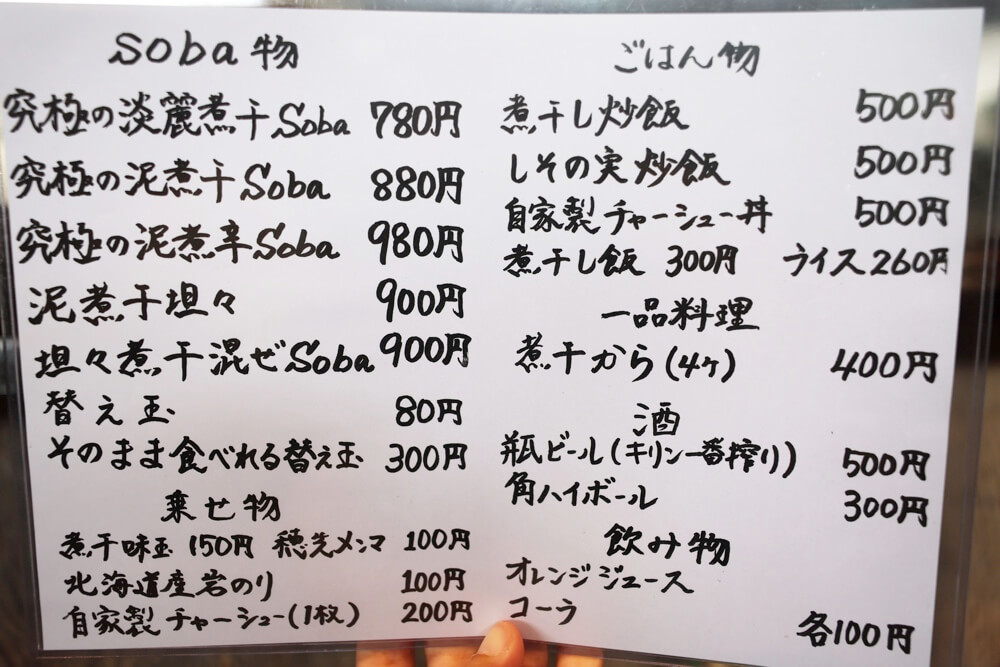 soba物
究極の淡麗煮干Soba 780円
究極の泥煮干Soba 880円
究極の泥煮辛Soba 980円
泥煮干坦々 900円
坦々煮干混ぜSoba 900円
替え玉 80円
そのまま食べれる替え玉 300円
乗せ物
煮干味玉 150円 穂先メンマ 100円
北海道産岩のり 100円
自家製チャーシュー(1枚) 200円
ごはん物
煮干し炒飯 500円
しその実炒飯 500円
自家製チャーシュー丼 500円
煮干し飯 300円 ライス260円
一品料理
煮干から(4ヶ) 400円
酒
瓶ビール(キリン一番搾り) 500円
角ハイボール 300円
飲み物
オレンジジュース
コーラ
各100円